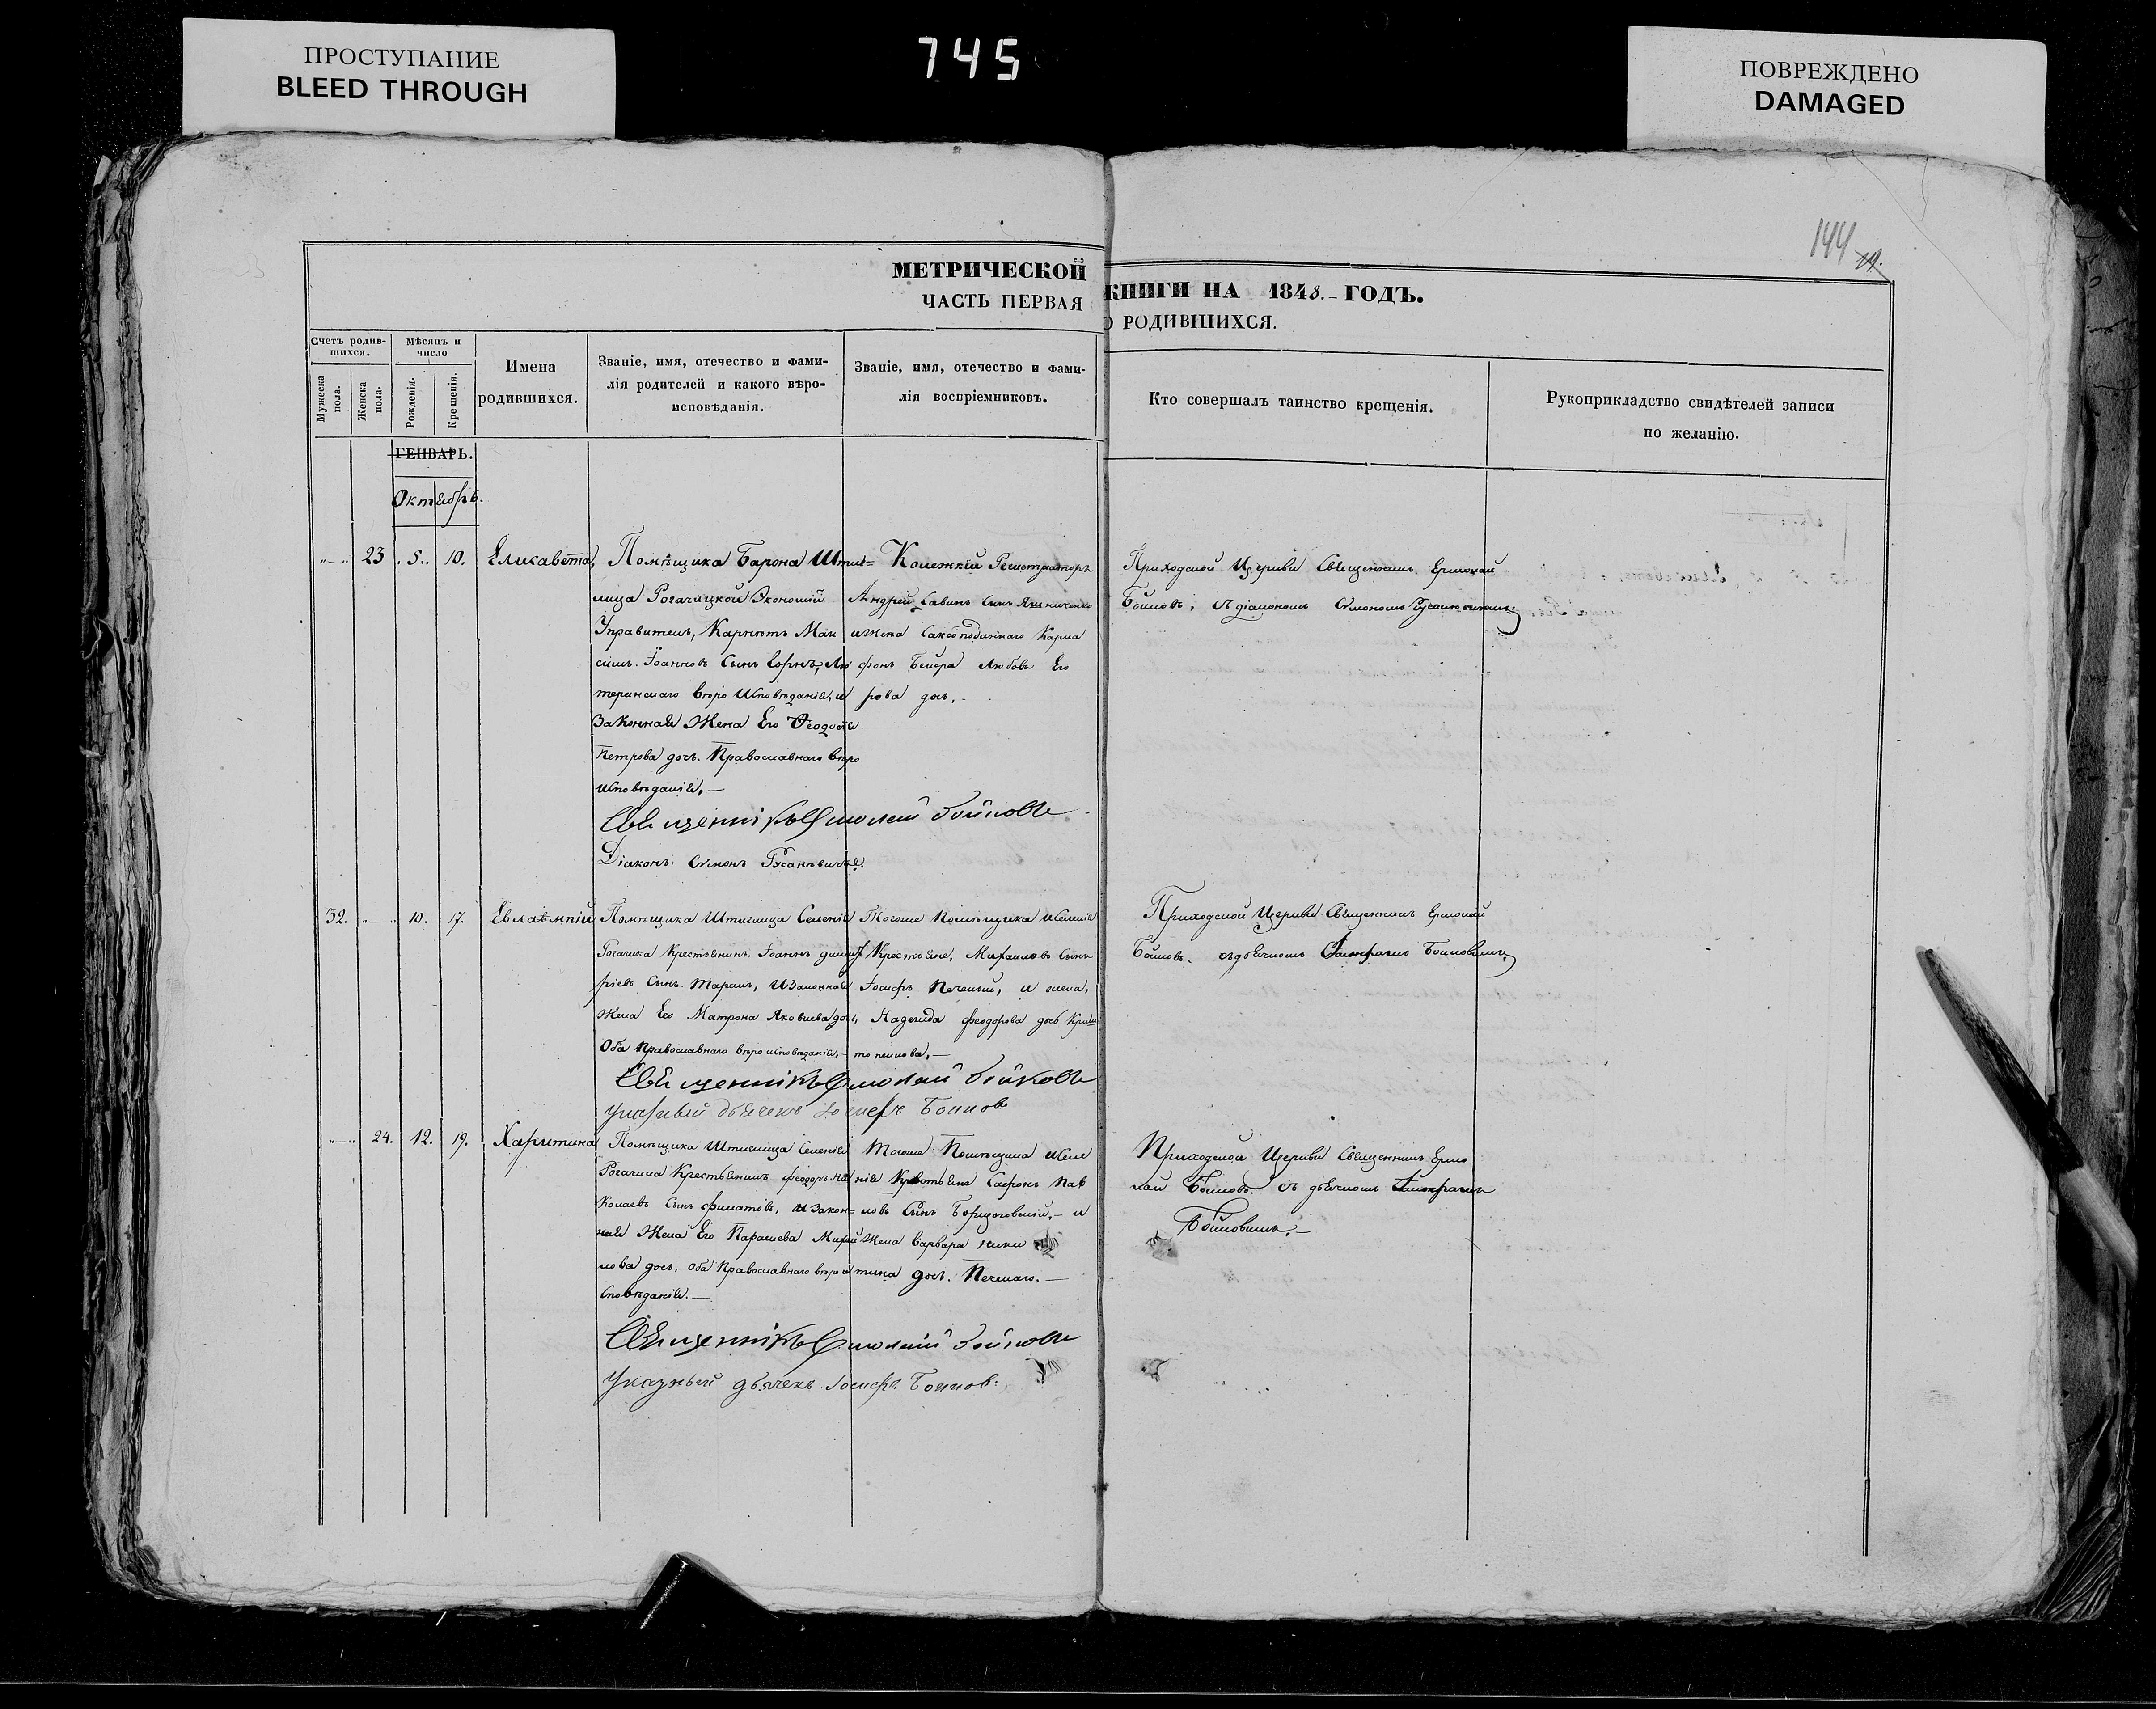 ПРОСТУПАНИЕ
BLEED THROUGH
745
ПОВРЕЖДЕНО
DAMAGED
144
19.
МЕТРИЧЕСКОЙ
КНИГИ НА 1848. ГОДЪ.
ЧАСТЬ ПЕРВАЯ
О РОДИВШИХСЯ.
Счетъ родив-
шихся.
Мужеска
пола.
Женска
пола.
Мѣсяцъ и
число
Рожденія.
Крещенія.
Имена
родившихся.
Званіе, имя, отечество и фами-
лія родителей и какого вѣро-
исповѣданія.
Званіе, имя, отечество и фами-
лія воспріемниковъ.
Кто совершалъ таинство крещенія.
Рукоприкладство свидѣтелей записи
по желанію.
ГЕНВАРЬ.
Октябрь.
23 5. 10. Елисавета,
Помѣщика Барона Штиг=
лица Рогачицкой Экономіи
Управитель,
Іоаннъ Сынъ Лю
теранскаго вѣро исповѣданія, и
Законная Жена Его Ѳеодосія
Петрова дочь. Православнаго вѣро
исповѣданія. —
Священнікъ Ермолай Бойковъ
Діаконъ Симонъ
Колежкій Регистраторъ
Андрей Савинъ Сынъ
и жена Саксоподаннаго Карла
фонъ Любовь Его
рова дочь. -
Приходской Церкви Священникъ Ермолай
Бойковъ, съ діакономъ Симономъ
32. 10. 17. Евлампій
Помѣщика Штиглица Селенія
Рогачика Крестьянинъ Іоаннъ Димит
ріевъ Сынъ и Законная
Жена Его Матрона Яковлева дочь,
Оба Православнаго вѣро исповѣданія. —
Священнікъ Ермолай Бойковъ
Указный дьячекъ Іосифъ Бойков
Тогоже Помѣщика и Селенія
Крестьяне, Михаиловъ Сынъ
Іосифъ и жена,
Надежда Феодорова дочь
Приходской Церкви Священникъ Ермолай
Бойковъ. съ дьячкомъ Бойковымъ
24. 12. 19. Харитина
Помѣщика Штиглица Селенія
Рогачика Крестьянинъ Феодоръ Ни
колаевъ Сынъ Филатовъ, и Закон=
ная Жена Его Параскева Михай
лова дочь, Оба Православнаго вѣро и
сповѣданія. —
Священнікъ Ермолай Бойковъ
Указный дьячекъ Іосифъ Бойков.
Тогоже Помѣщика и Селе
нія Крестьяне Сафронъ Пав
ловъ Сынъ и
Жена Варвара Ники
тина дочь.
Приходской Церкви Священникъ Ермо
лай Бойковъ съ дьячкомъ
Бойковымъ. —